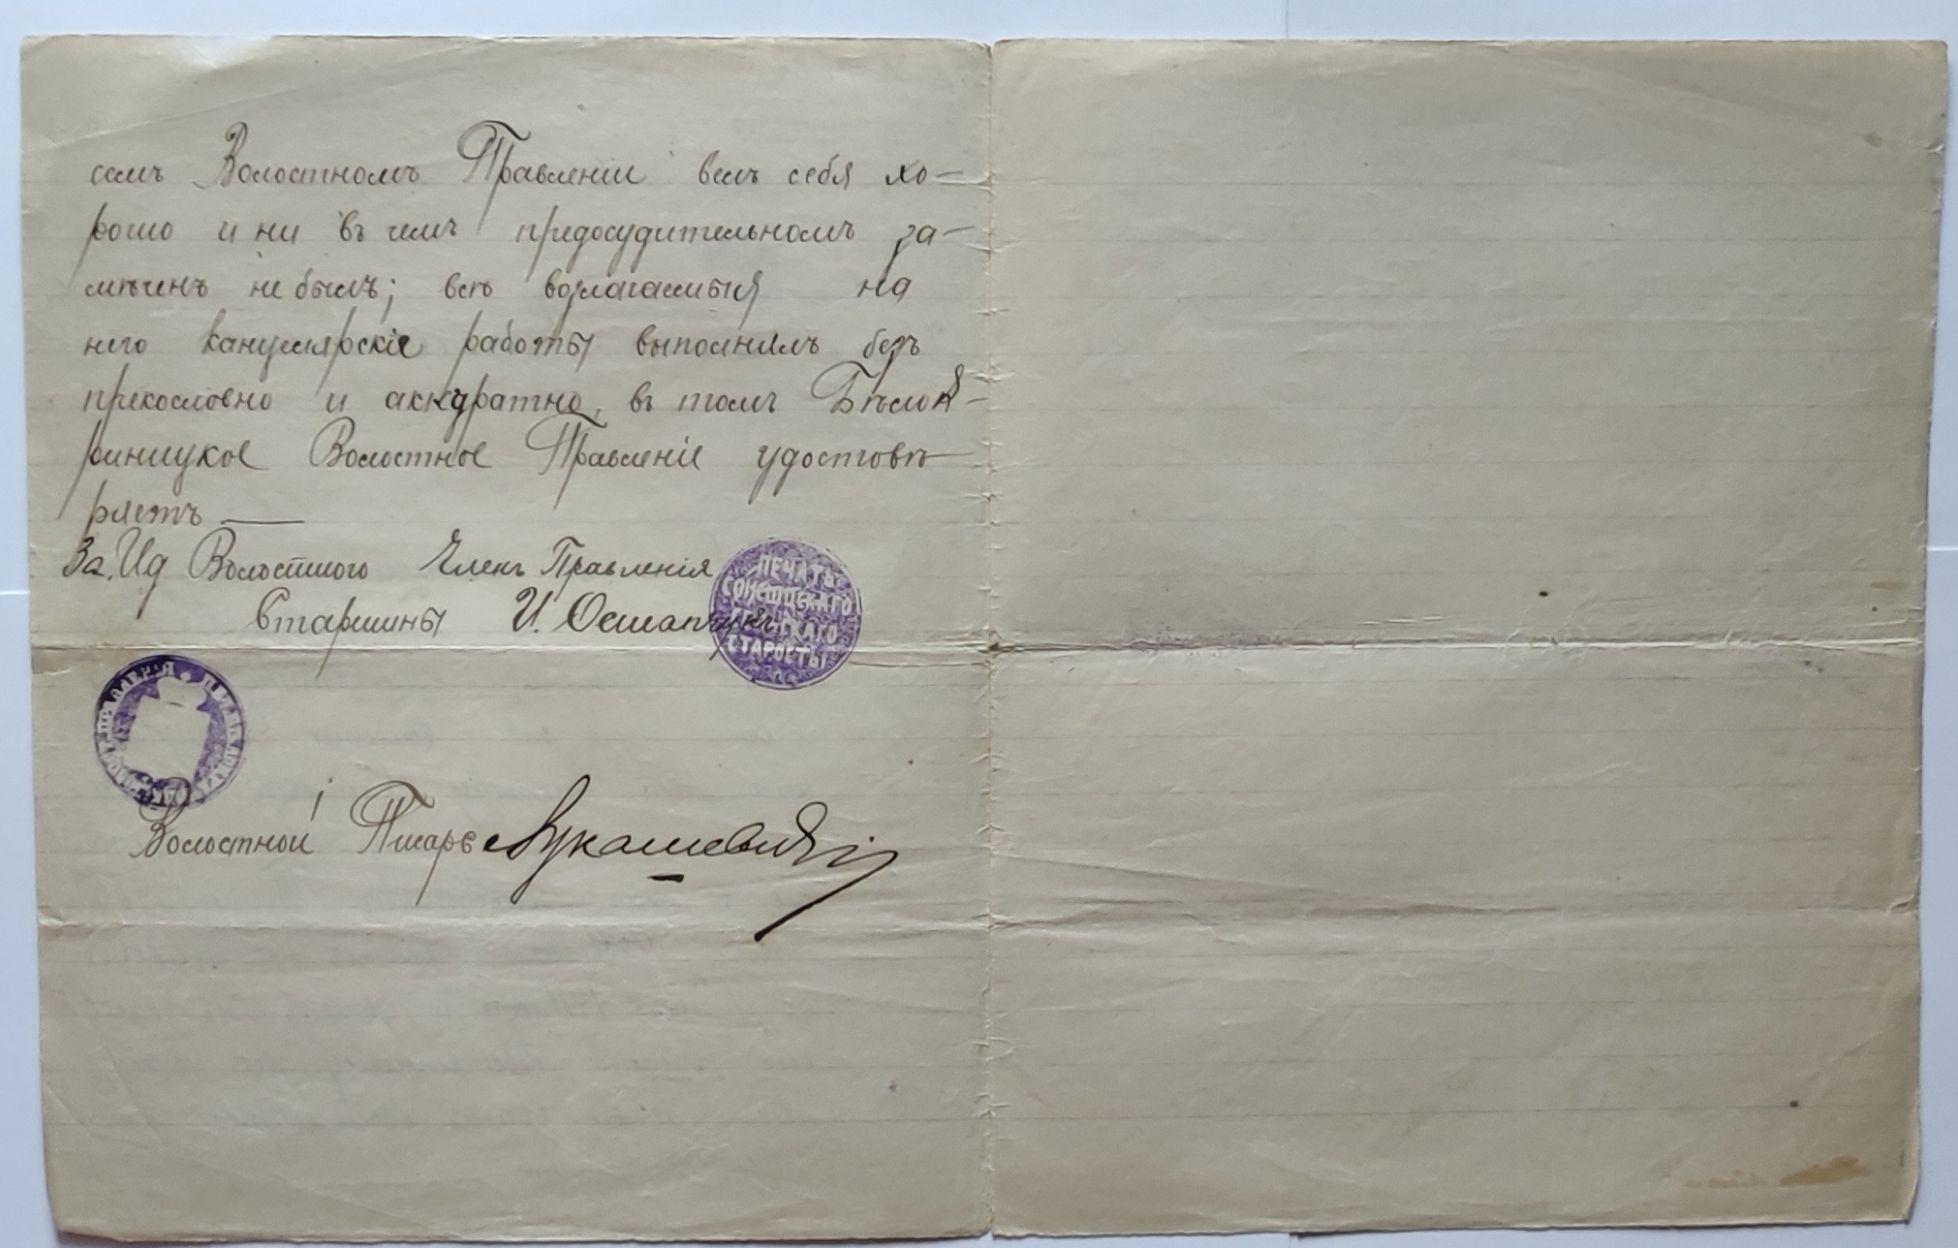 семъ Волостномъ Правленіи велъ себя хо-
рошо и ни въ чемъ предосудительномъ за-
мѣченъ не былъ; всѣ возлагаемыя на
него канцелярскіе работы выполнялъ без
прекословно и аккуратно, въ томъ Бѣлок-
риницкое Волостное Правленіе удостовѣ
ряетъ
За. Ид Волостного Членъ Правленія
Старшины И.
ПЕЧАТЬ
СЕЛЬСКАГО
СТАРОСТЫ
Волостной Писарь Лукашевичъ